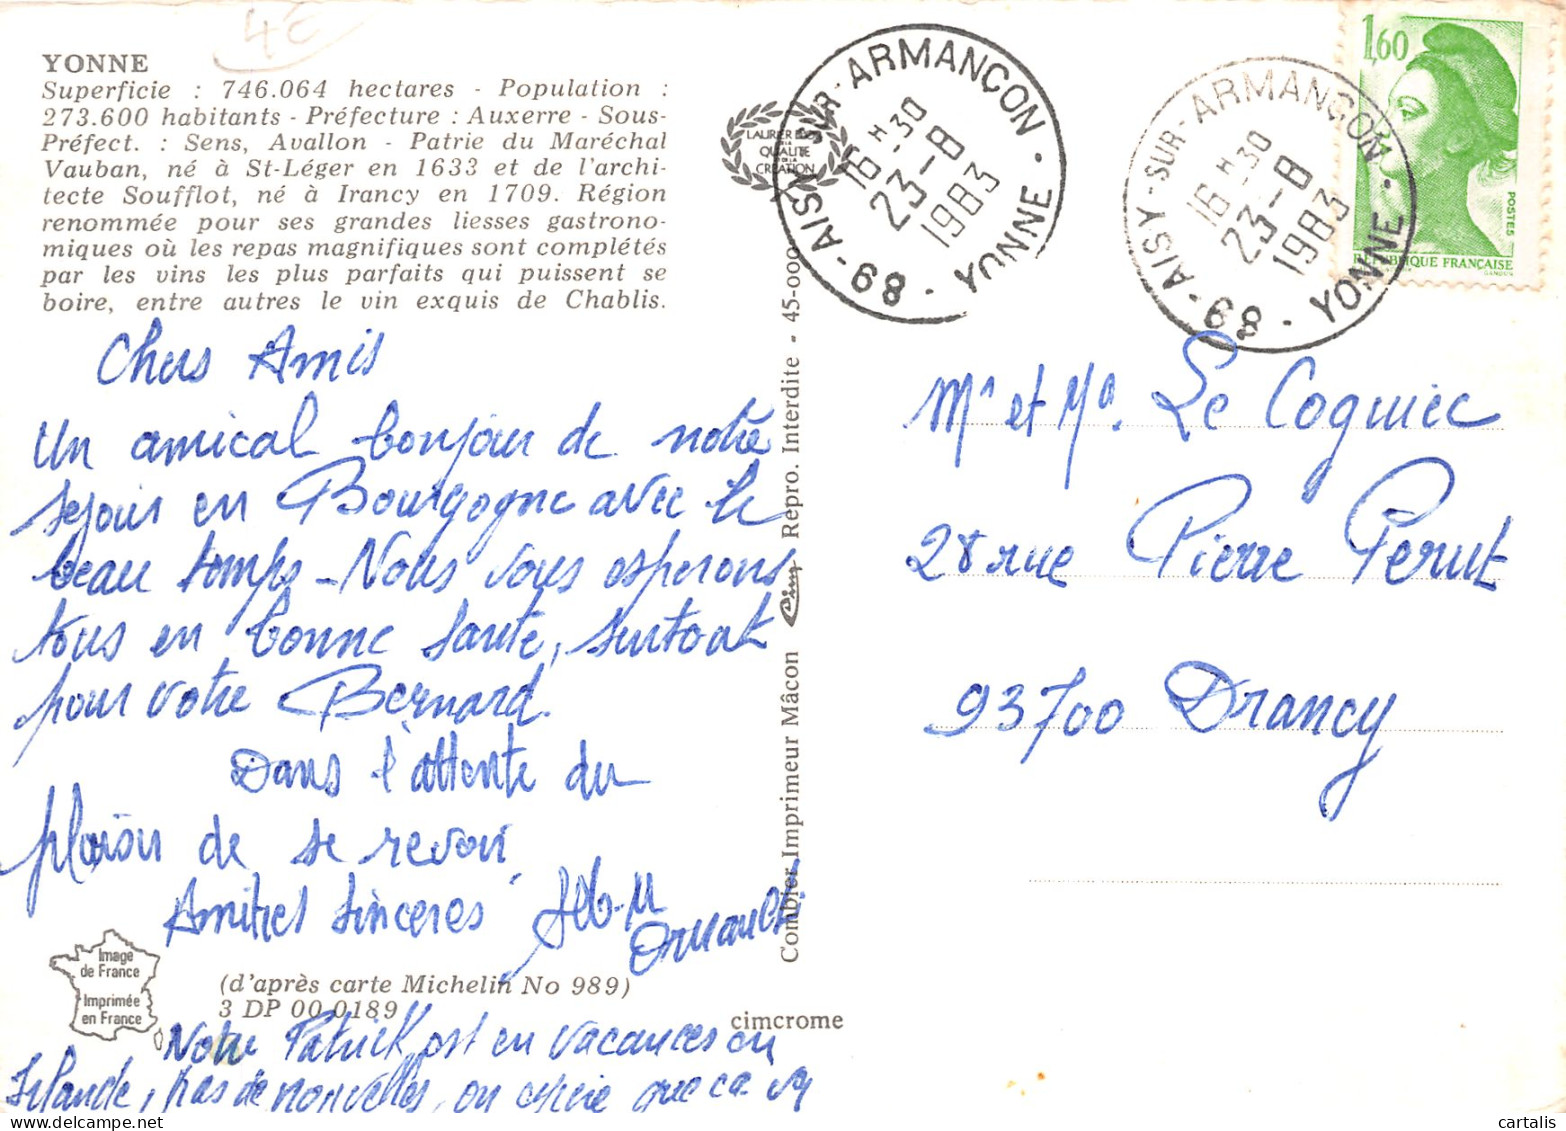 4€
YONNE
Superficie : 746.064 hectares - Population :
273.600 habitants - Préfecture : Auxerre - Sous-
Préfect. : Sens, Avallon - Patrie du Maréchal
Vauban, né à St-Léger en 1633 et de l'archi-
tecte Soufflot, né à Irancy en 1709. Région
renommée pour ses grandes liesses gastrono-
miques où les repas magnifiques sont complétés
par les vins les plus parfaits qui puissent se
boire, entre autres le vin exquis de Chablis.
Chers Amis
Un amical bonjour de notre
sejour en Bourgogne avec le
beau temps - Nous vous esperons
tous en bonne sante, surtout
pour votre Bernard.
Dans l'attente du
plaisir de se revoir
Amities sinceres
(d'après carte Michelin No 989)
3 DP 00 0189
cimcrome
Image
de France
Imprimée
en France
Notre Patrick est en vacances en
Irlande, pas de nouvelles, on espere que ca va
Combier Imprimeur Mâcon Cim Repro. Interdite - 45-000
LAURIER D'OR
DE LA
QUALITE
DE LA
CREATION
89 - AISY - SUR - ARMANCON - YONNE -
16 H 30
23 - 8
1983
89 - AISY - SUR - ARMANCON - YONNE -
16 H 30
23 - 8
1983
1,60
POSTES
RÉPUBLIQUE FRANÇAISE
GANDON
Mr et Me. Le Coguiec
28 rue Pierre Perut
93700 Drancy
cartalis